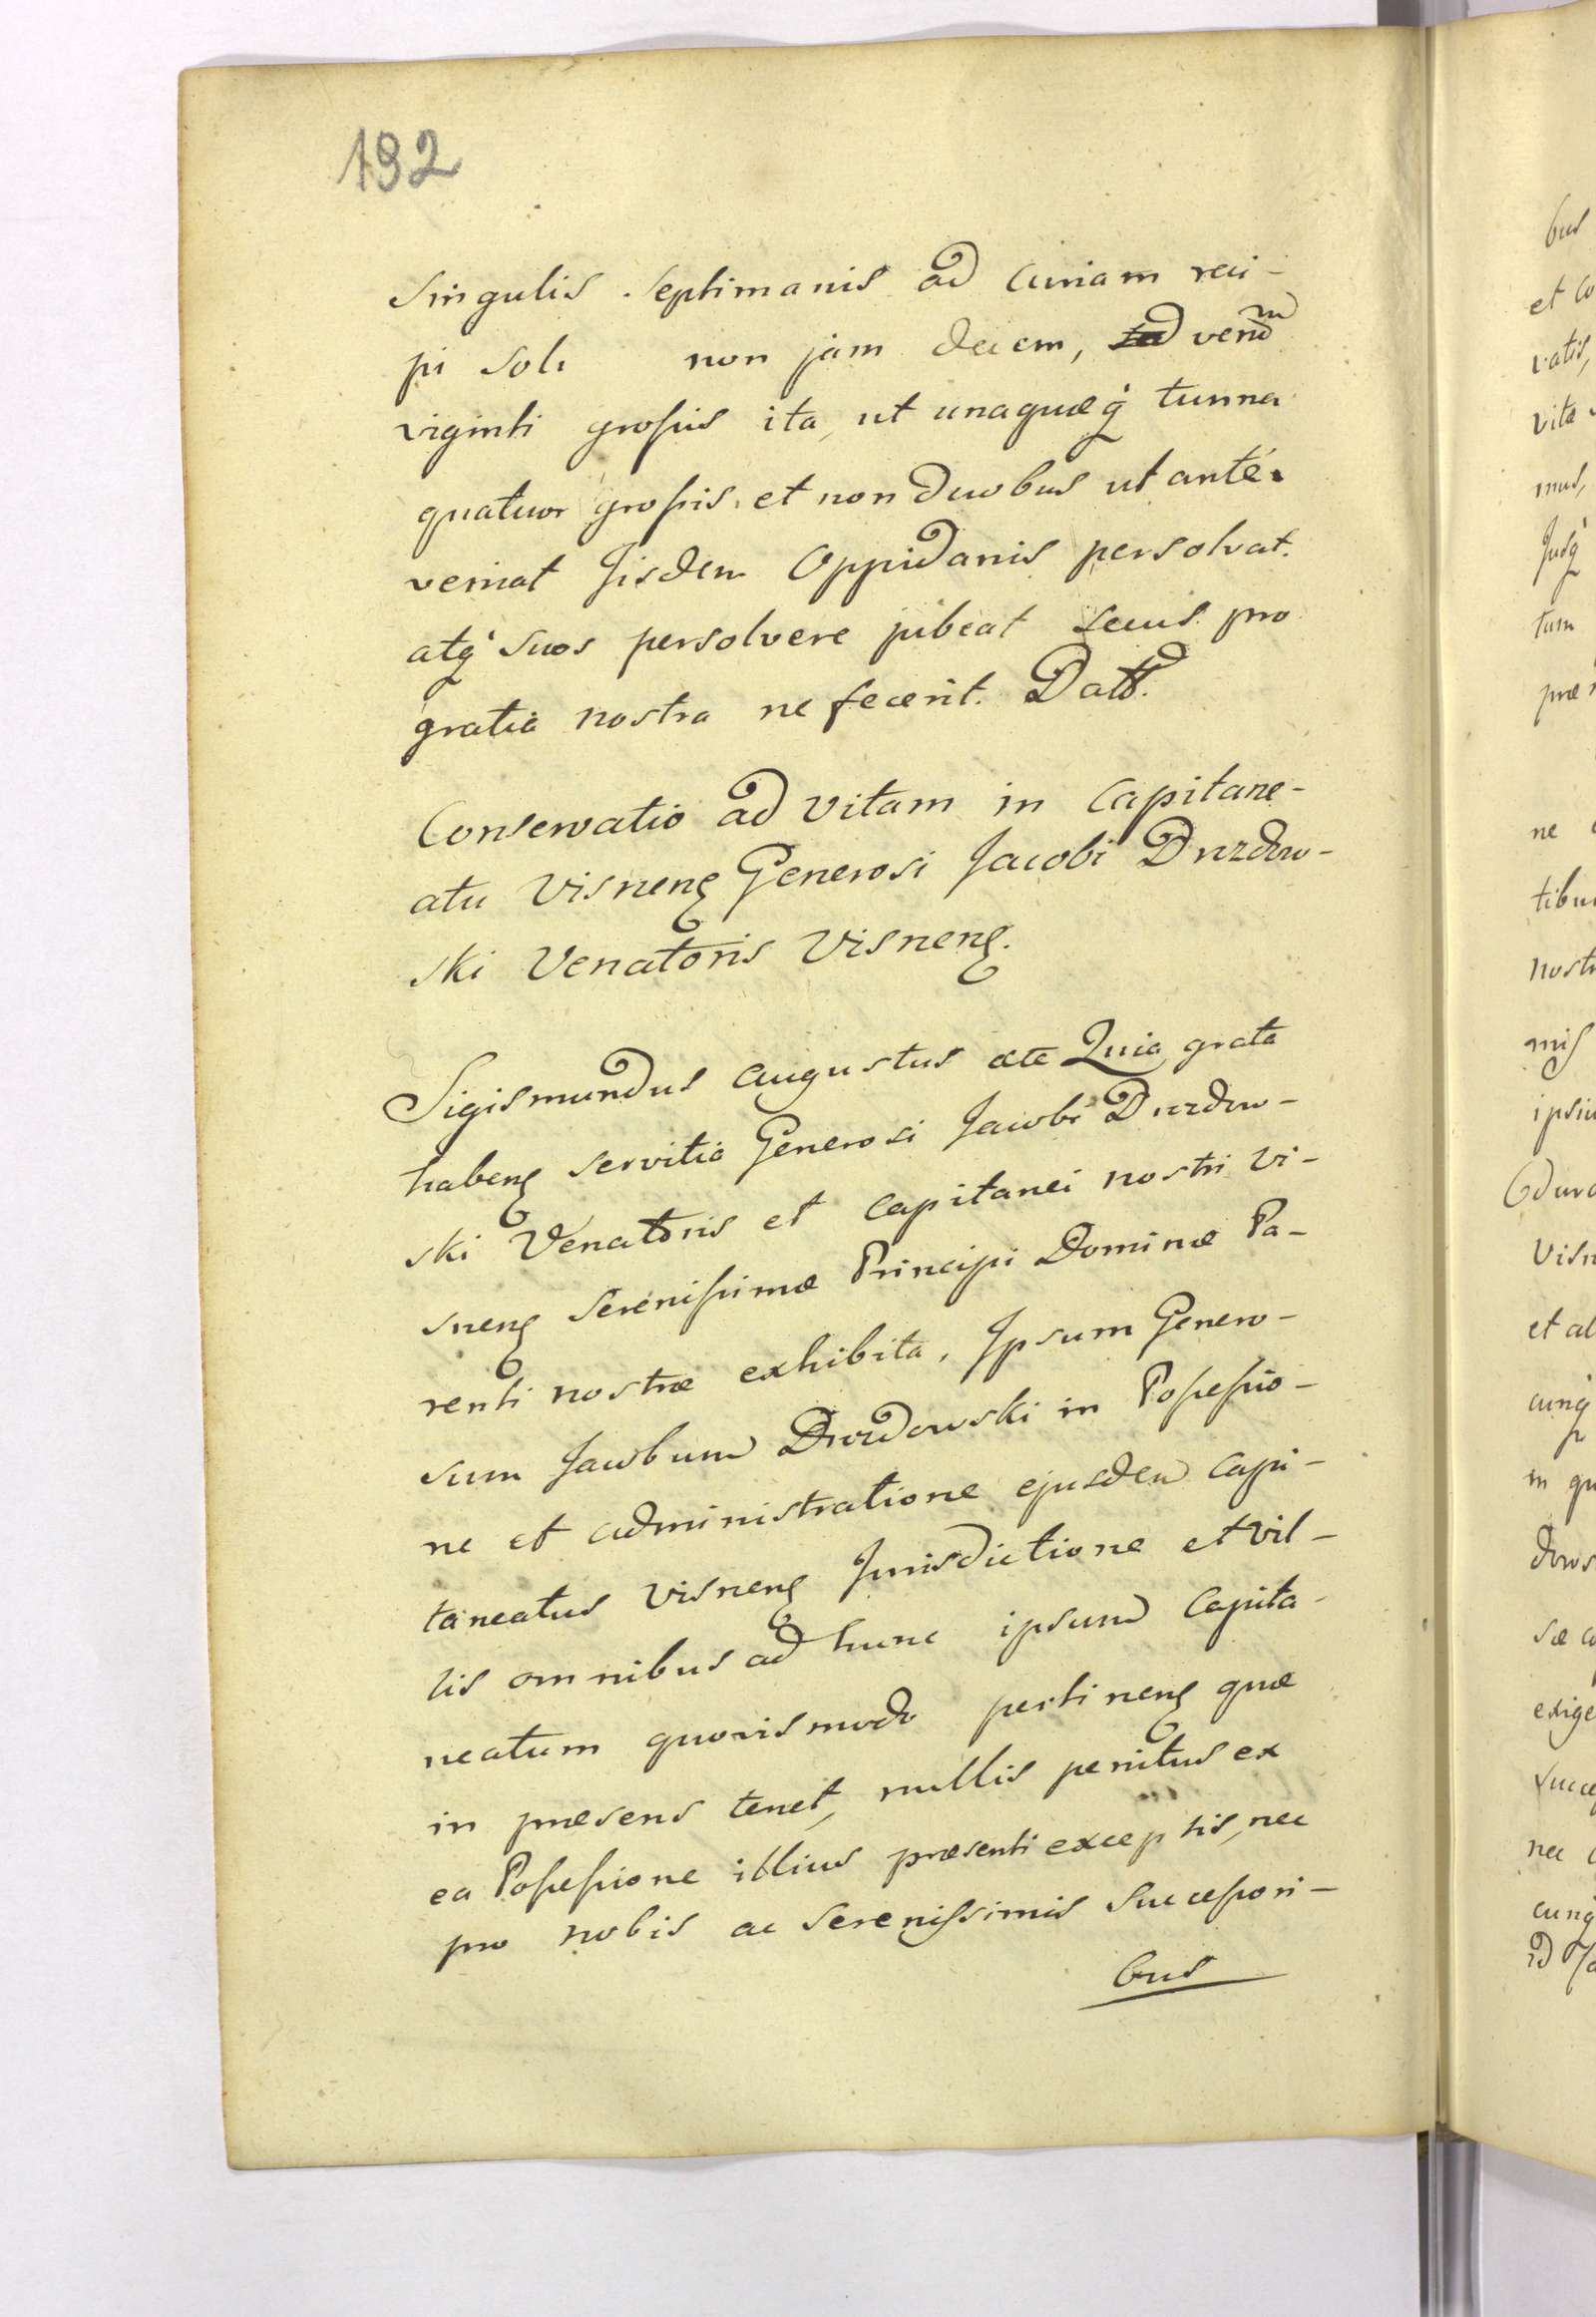 192
Singulis Septimanis ad Curiam reci-
pi soli non jam decem, sed verum
viginti grossis ita, ut unaquaeq́ tunna
quatuor grossis, et non duobus ut ante.
veniat Iisdem Oppidanis persolvat.
atq́ suos persolvere jubeat secus pro
gratia nostra ne fecerit. Datt.
Conservatio ad Vitam in Capitane-
atu Visnenę Generosi Jacobi Druzdow-
ski Venatoris Visnenę.
Sigismundus Augustus etc Quia grata
habenę servitia Generosi Jacobi Druzdow-
ski Venatoris et Capitanei nostri Vi-
snenę Serenissimae Principi Dominae Pa-
renti nostrae exhibita, Ipsum Genero-
sum Jacobum Druzdowski in Possessio-
ne et administratione ejusdem Capi-
taneatus Visnenę Jurisdictione et Vil-
lis omnibus ad hunc ipsum Capita-
neatum quovismodo pertinenę quae
in praesens tenet, nullis penitus ex
ea Possessione illius praesenti exceptis, nec
pro nobis ac Serenissimis Successori-
bus